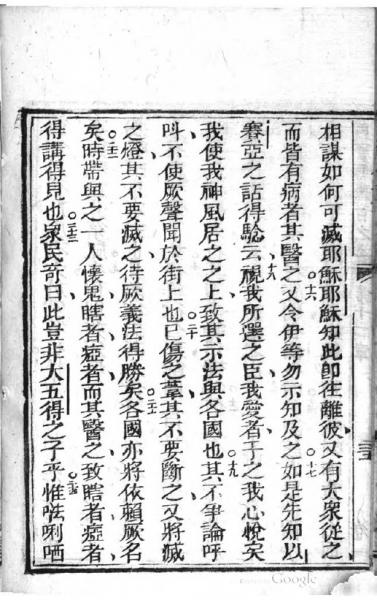 相謀如何可滅耶穌耶穌知此卽往離彼又有大衆從之
而皆有病者其醫之又令伊等勿示知及之如是先知以
賽亞之話得騐云視我所選之臣我愛者于之我心悅矣
我使我神風居之之上致其示法與各國也其不爭論呼
叫不使厥聲聞於街上也已傷之葦其不要斷之又將滅
之燈其不要滅之待厥義法得勝矣各國亦將依賴厥名
矣時帶與之一人懷鬼瞎者瘂者而其醫之致瞎者瘂者
得講得見也衆民奇曰此豈非大五得之子乎惟𠵽唎哂
Google